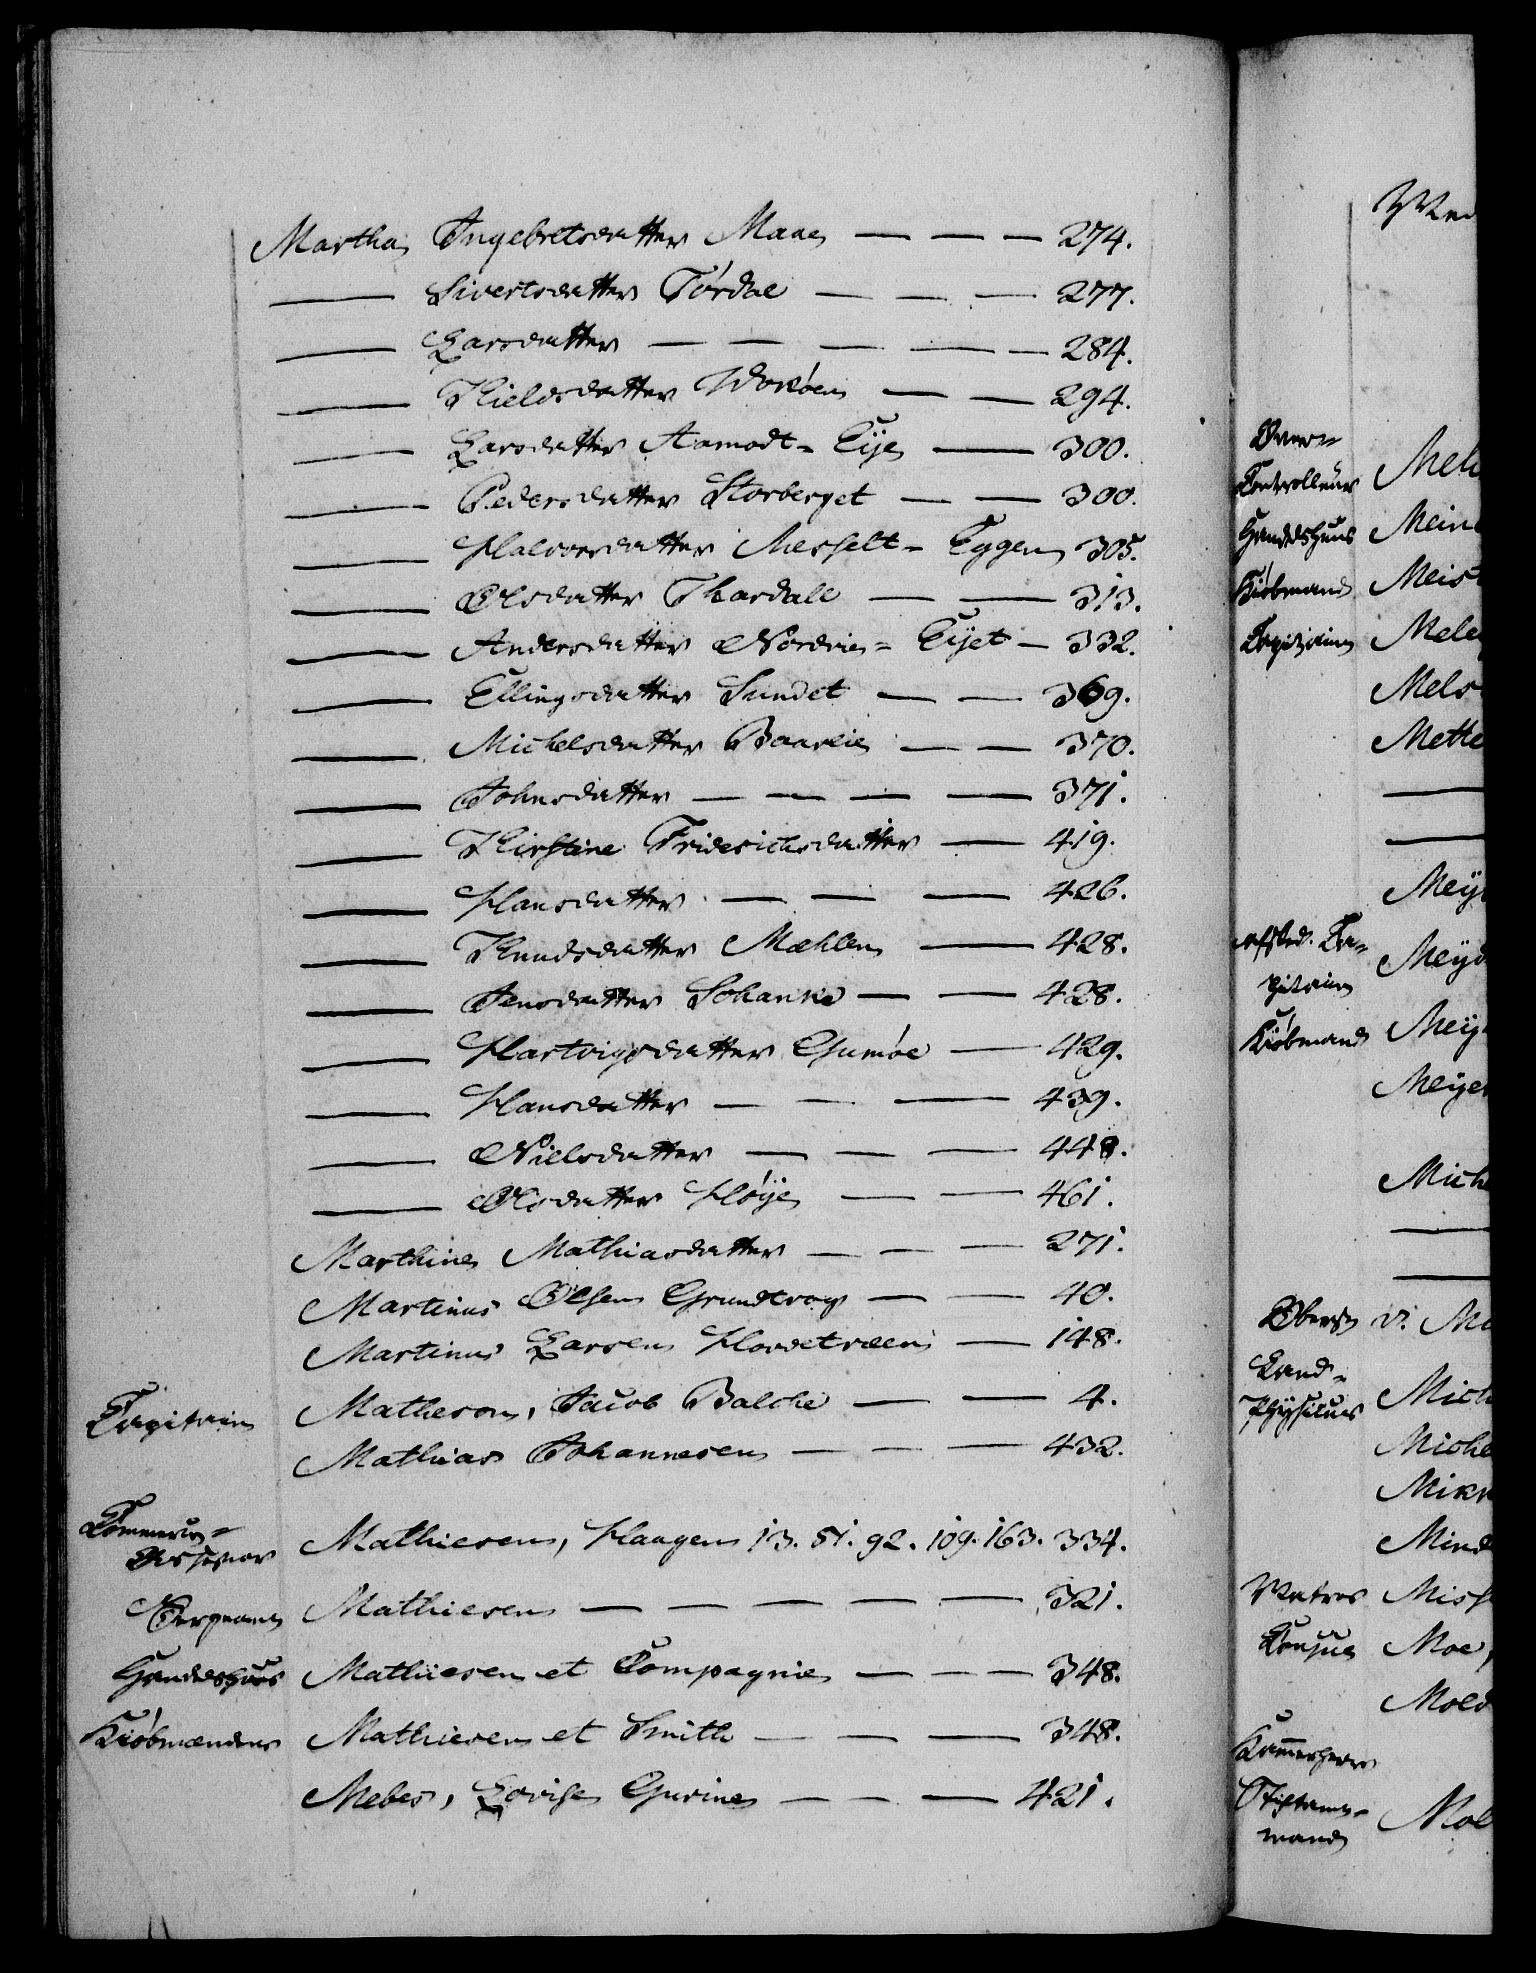 Martha Ingebretsdatter Maae — — — 274.
— Sivertsdatter Tørdal — — — 277.
— Larsdatter — — — — — 284.
— Kieldsdatter — — 294.
— Larsdatter Aamodt- Eye — 300.
— Pedersdatter Storberget — — 300.
— Halvorsdatter Messelt- Eggen 305.
— Olsdatter Thardall — — 313.
— Andersdatter Nordvie- Eyet — 332.
— Ellingsdatter Sundet — — 369.
— Michelsdatter Baarlie — — 370.
— Johnsdatter — — — — 371.
— Kirstine Friderichsdatter — 419.
— Hansdatter — — — 426.
— Knudsdatter Mæhlen — 428.
— Jensdatter Schanke — — 428.
— Hartvigsdatter Gumøe — 429.
— Hansdatter — — — 439.
— Nielsdatter — — — 448.
— Olsdatter Høye — — 461.
Marthine Mathiasdatter — — — 271.
Martinus Olsen Grundtrog — — 40.
Martinus Larsen Hovdetræen — 148.
Capitain Matheson, Jacob Balche — — 4.
Mathias Johannesen — — — 432.
Commerce-
Assessor Mathiesen, Haagen 13. 51. 92. 109. 163. 334.
Sergeant Mathiesen — — — — — 321.
Handelshuus Mathiesen et Compagnie — — — 348.
Kiøbmændene Mathiesen et Smith — — — 348.
Mebes, Lovise Gurine — — — 421.
Over-
Controlleur Meh
Handelshuus Mein
Kiøbmand Meist
Capitain Mele
Mels
Mette
—
—
Mey
afsked. Ca-
pitain Meyd
Kiøbmand Mey
Meyer
Mich
—
—
Oberst v. M
Land-
Physicus Mich
Miche
Mikk
Mind
Matros Miss
Consul Moe,
Mold
Kammerherre
Stiftamt-
mand Mol